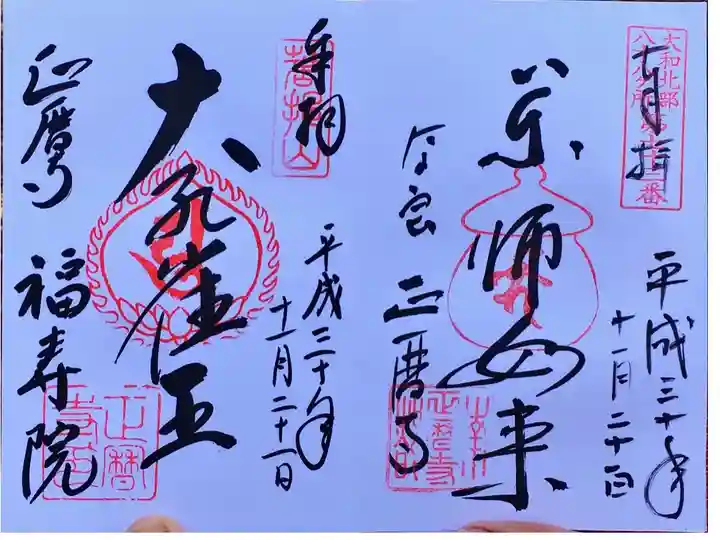 大和北部
八十八ヶ所第
番
奉拝
薬師如来
正暦寺
平成三十年
十一月二十一日
奉拝
菩提山
大孔雀王
正暦寺
福寿院
正暦寺
平成三十年
十一月二十一日